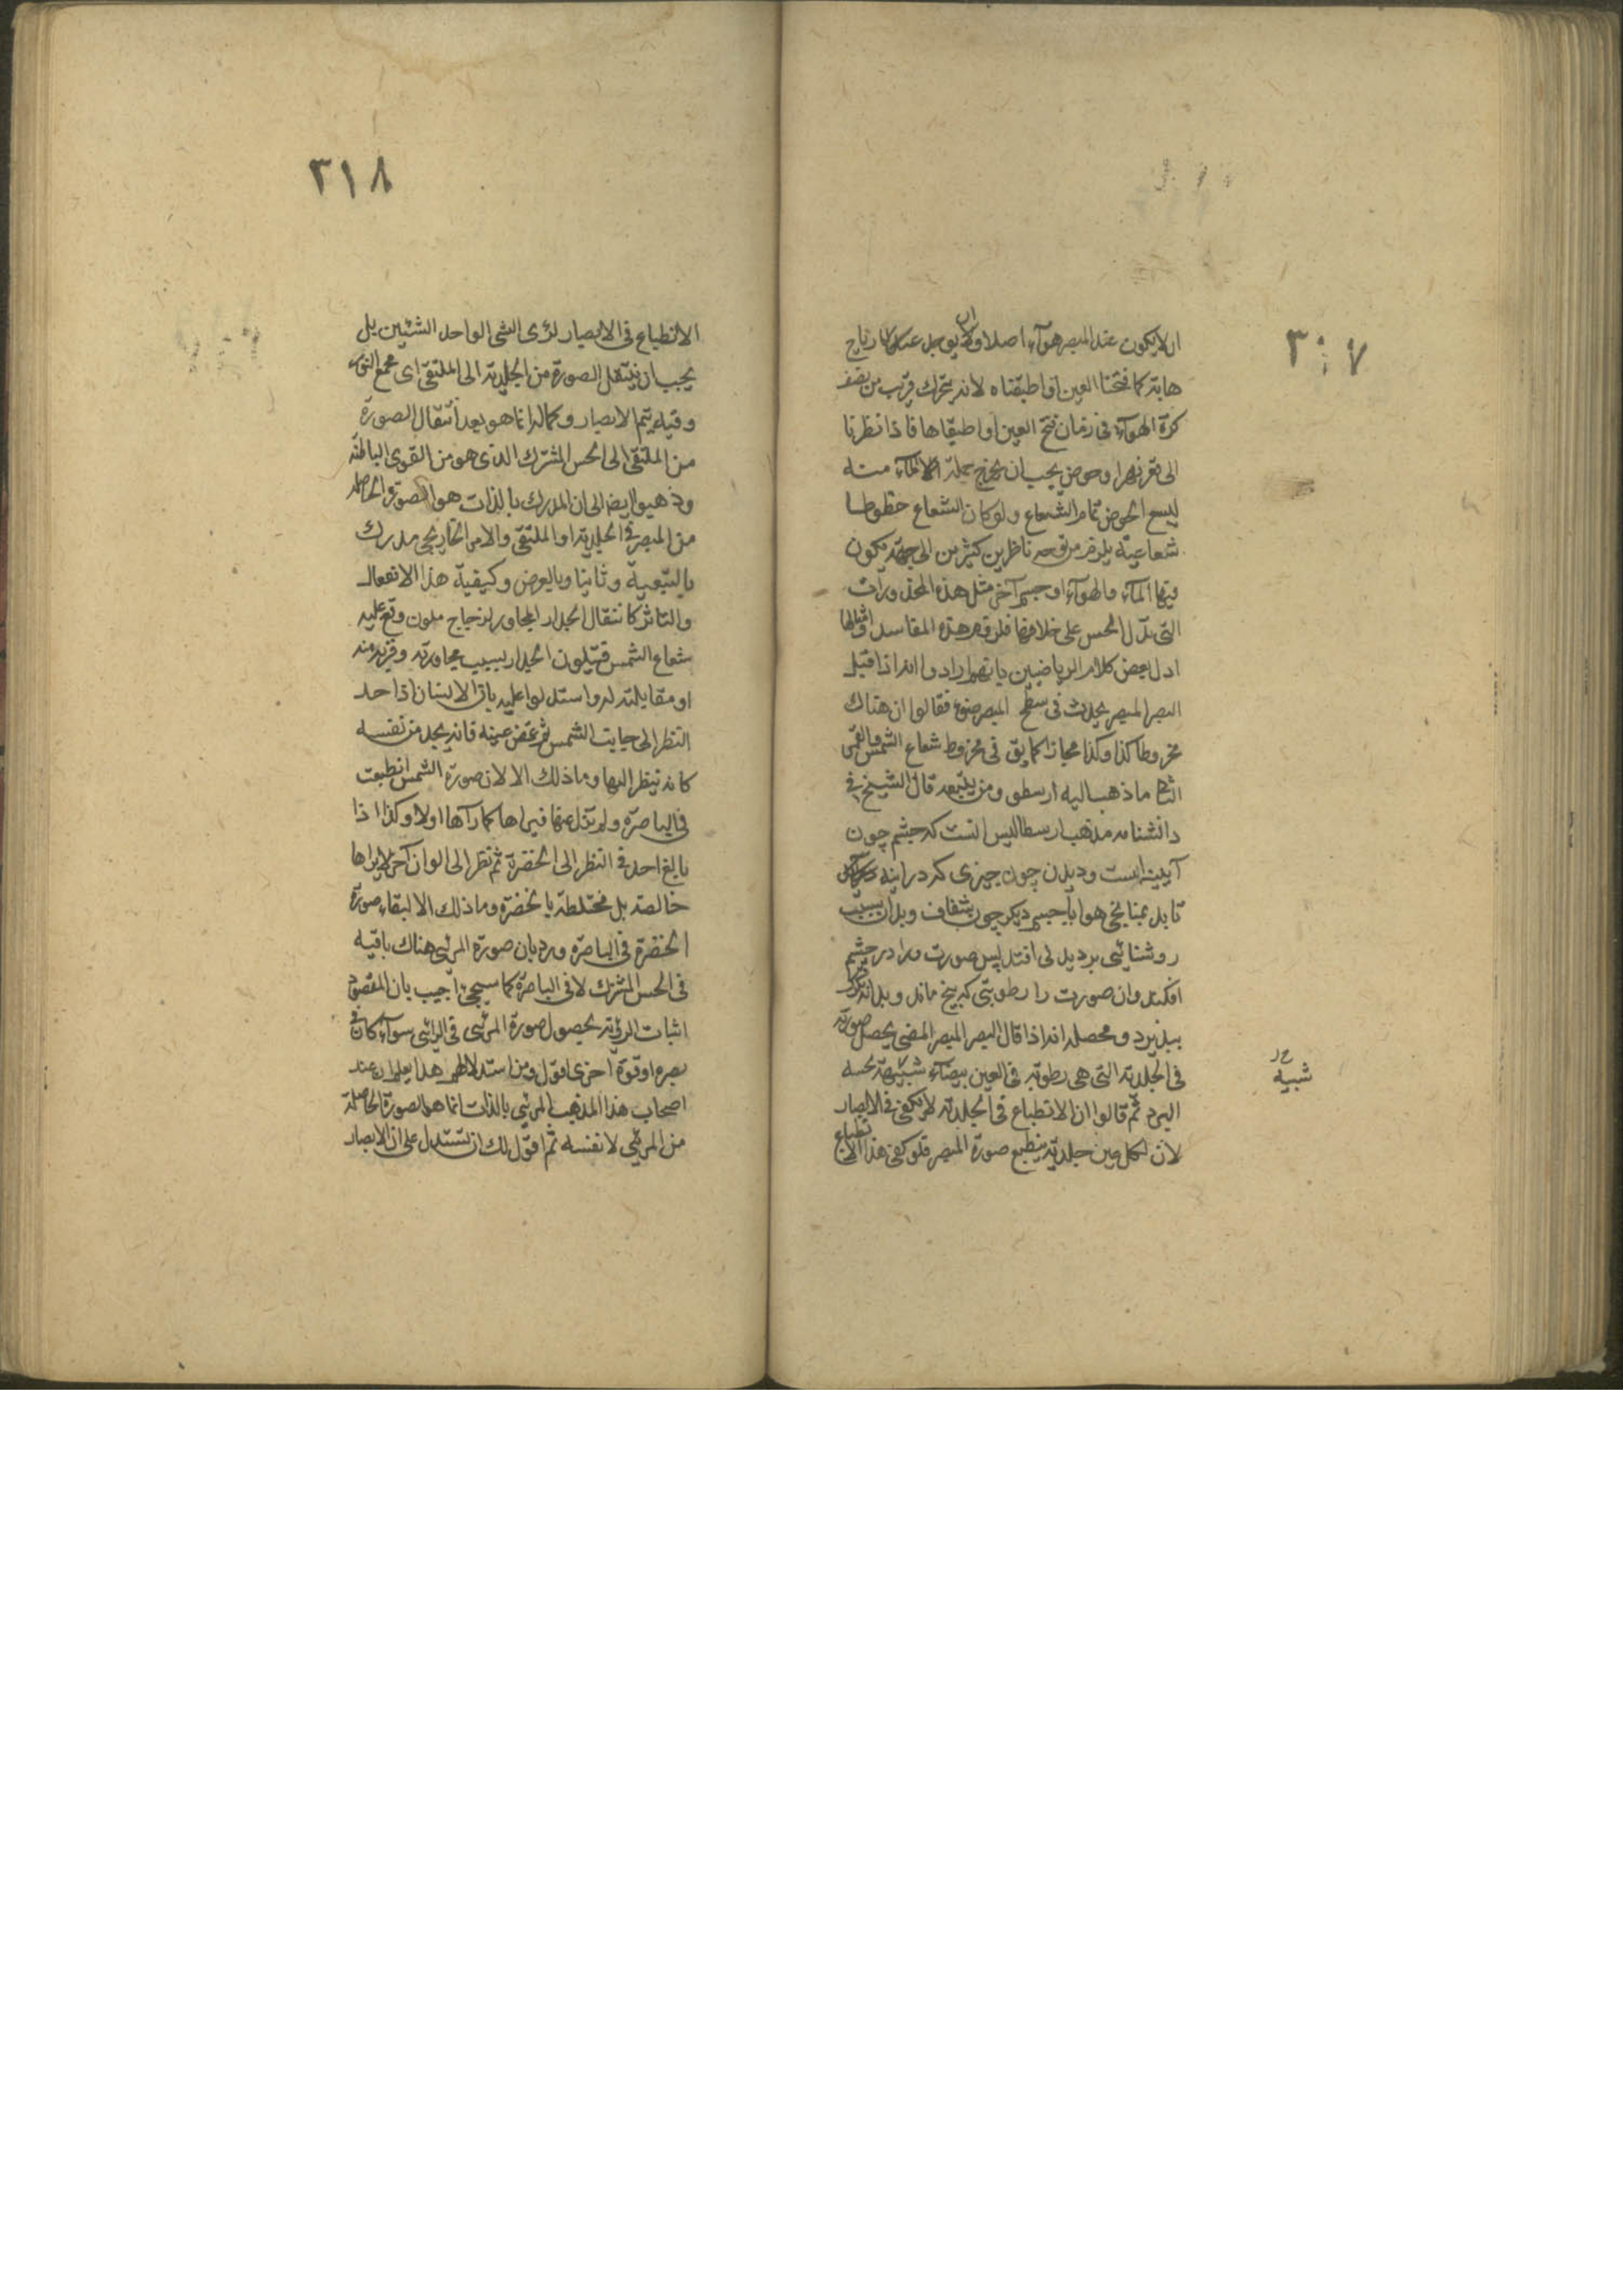 ٣٠٧
ان لا يكون عند المبصر هوآء اصلا ولا ان يوجد عند رياح
هابة كما فتحنا العين او اطبقناه لانه يتحرك قريب من نصف
كرة الهوآء فى زمان فتح العين او اطبقاها فاذا نظرنا
الى قعر نهر او حوض يجب ان يخرج جملة المآء منه
ليسع الحوض تمام الشعاع ولو كان الشعاع خطوطا
شعاعية يلزم من توجه ناظرين كثيرين الى جهة يكون
فيها المآء والهوآء او جسم آخر مثل هذه المحذورات
التى يدل الحس على خلافها فلزوم هذه المفاسد وامثالها
ادل بعض كلام الرياضيين بانهم ارادوا انه اذا قبل
البصر المبصر يحدث فى سطح المبصر ضوء فقالوا ان هناك
مخروطا كذا وكذا مجازا كما يق فى مخروط شعاع الشمس والقمر
الثانى ما ذهب اليه ارسطو ومن يتبعه قال الشيخ فى
دانشنامه مذهب ارسطاليس انست كه چشم چون
آيينه است وديدن چون چيزى كه در اينه
تابد بميانجى هوا يا جسم ديكر چون شفاف وبدان سبب
روشنائى برديدنى افتد پس صورت ورا در چشم
افكند وان صورت را رطوبتى كه بيخ ماند وبدانه
بپذيرد ومحصله انه اذا قابل البصر المبصر المضى يحصل صورته
فى الجلدية التى هى رطوبة فى العين بيضآء شبيهة بحسه
شبيه
البرد ثم قالوا ان الانطباع فى الجلدية لم يكفى فى الابصار
لان لكل عين جلدية ينطبع صورة المبصر فلو كفى هذا الانطباع
٣١٨
الانطباع فى الابصار لرئ الشى الواحد الشيئين بل
يجب ان ينتقل الصورة من الجلدية الى الملتقى اى مجمع النور
وفيه يتم الابصار وكماله انما هو بعد انتقال الصورة
من الملتقى الى الحس المشترك الذى هو من القوى الباطنة
وذهبوا ايضا الى ان المدرك بالذات هو الصورة الحاصلة
من المبصر فى الجلدية او الملتقى والامر الخارجى مدرك
بالتبعية وثانيا وبالعرض وكيفية هذا الانفعال
والتاثر كانتقال الجدار المجاور لزجاج ملون وقع عليه
شعاع الشمس فيتلون الجدار بسبب مجاورته وقربه منه
او مقابلته له واستدلوا عليه بان الانسان اذا حد
النظر الى جانب الشمس ثم غمض عينه فانه يجد من نفسه
كانه ينظر اليها وما ذلك الا لان صورة الشمس انطبعت
فى الباصرة ولم تزل عنها فيراها كما رآها اولا وكذا اذا
بالغ احد فى النظر الى الخضرة ثم نظر الى الوان آخر لا يراها
خالصة بل مختلطة بالخضرة وما ذلك الا لبقاء صورة
الخضرة فى الباصرة ورد بان صورة المرئى هناك باقيه
فى الحس المشترك لا فى الباصرة كما سيجئ اجيب بان المقصود
اثبات الرؤية بحصول صورة المرئى فى الرائى سوآء كان فى
بصره او قوة اخرى اقول ومن استدلالهم هذا يعلم ان عند
اصحاب هذا المذهب المرئى بالذات انما هو الصورة الحاصلة
من المرئى لا نفسه ثم اقول لك ان تستدل على ان الابصار